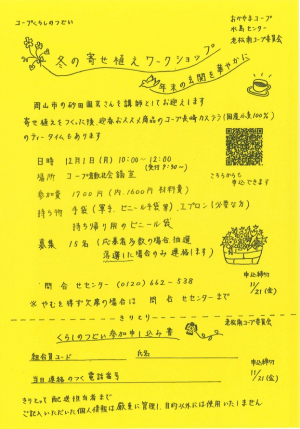 コープくらしのつどい
おかやまコープ
水島センター
老松南コープ委員会
冬の寄せ植えワークショップ
年末の玄関を華やかに
岡山市の砂田園芸さんを講師としてお迎えします
寄せ植えをつくった後、迎春おススメ商品のコープ長崎カステラ(国産小麦100%)
のティータイムもあります
日時 12月1日(月)10:00~12:00
(受付9:50~)
場所 コープ倉敷北会議室
こちらからも
申込できます
参加費 1700円(内、1600円 材料費)
持ち物 手袋(軍手、ビニール手袋等)、エプロン(必要な方)
持ち帰り用のビニール袋
募集 15名(応募者多数の場合 抽選
落選した場合のみ 連絡します)
問合せセンター(0120)662-538
※やむを得ず欠席の場合は 問合せセンターまで
申込締切
11/21(金)
きりとり
くらしのつどい参加申し込み書
老松南コープ委員会
組合員コード
氏名
当日連絡のつく電話番号
申込締切
11/21(金)
きりとって配送担当者まで
ご記入いただいた個人情報は厳重に管理し、目的以外には使用いたしません